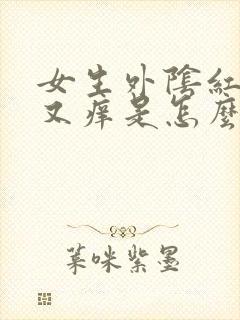 女生外陰紅
又痒是怎麼
葉咪紫墨